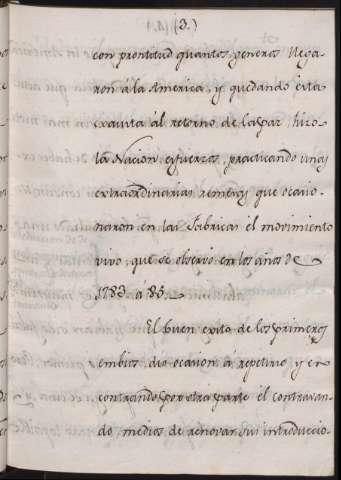 (3.)
con prontitud quantos generos llega-
ron á la America, y quedando ésta
exausta al retorno de la paz, hizo
la Nacion esfuerzos, practicando unas
extraordinarias remesas que ocasio-
naron en las Fabricas el movimiento
vivo, que se observó en los años de
1783 a 85.
El buen exito de los primeros
embios dio ocasion a repetirlo y en-
contrando por otra parte el contravan-
do medios de renovar sus introduccio-